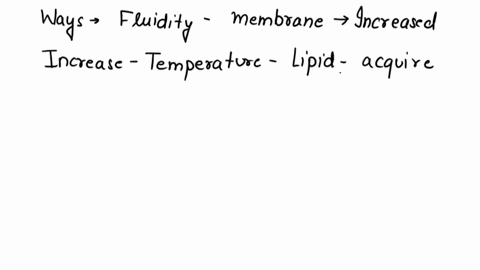 Ways → Fluidity - membrane → Increased
Increase - Temperature - Lipid - acquire